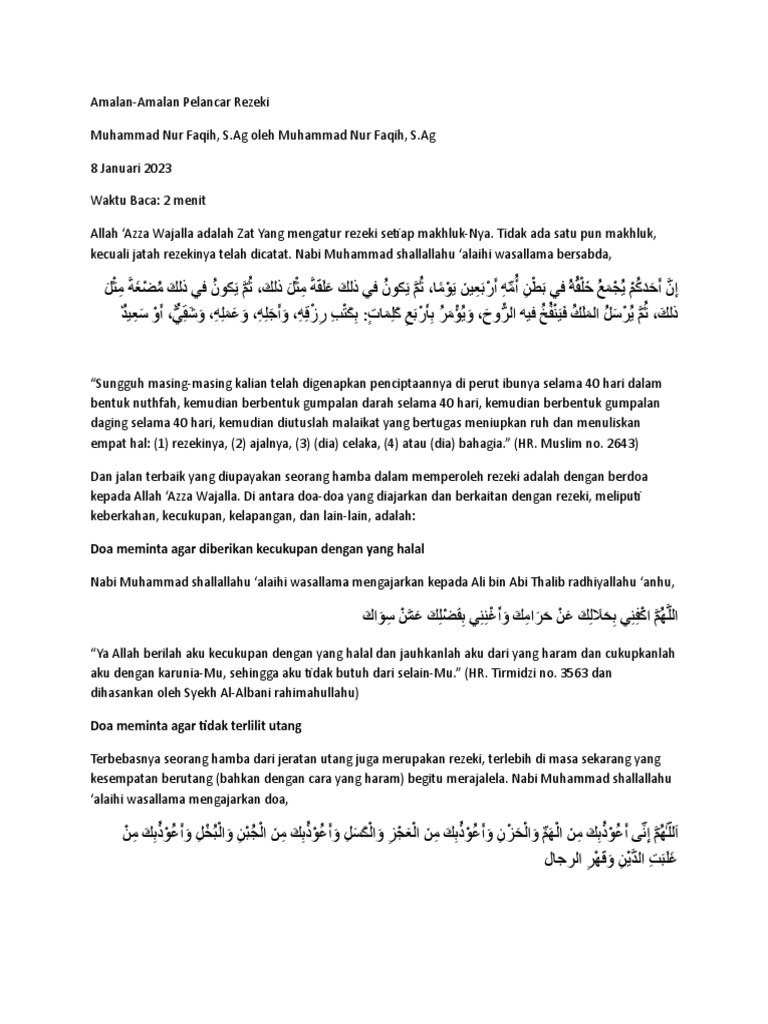 Amalan-Amalan Pelancar Rezeki
Muhammad Nur Faqih, S.Ag oleh Muhammad Nur Faqih, S.Ag
8 Januari 2023
Waktu Baca: 2 menit
Allah ‘Azza Wajalla adalah Zat Yang mengatur rezeki setiap makhluk-Nya. Tidak ada satu pun makhluk,
kecuali jatah rezekinya telah dicatat. Nabi Muhammad shallallahu ‘alaihi wasallama bersabda,
إنَّ أحَدَكُمْ يُجْمَعُ خَلْقُهُ في بَطْنِ أُمِّهِ أرْبَعِينَ يَوْمًا، ثُمَّ يَكونُ في ذلكَ عَلَقَةً مِثْلَ ذلكَ، ثُمَّ يَكونُ في ذلكَ مُضْغَةً مِثْلَ
ذلكَ، ثُمَّ يُرْسَلُ المَلَكُ فَيَنْفُخُ فيه الرُّوحَ، وَيُؤْمَرُ بأَرْبَعِ كَلِمَاتٍ: بِكَتْبِ رِزْقِهِ، وَأَجَلِهِ، وَعَمَلِهِ، وَشَقِيٌّ، أَوْ سَعِيدٌ
“Sungguh masing-masing kalian telah digenapkan penciptaannya di perut ibunya selama 40 hari dalam
bentuk nuthfah, kemudian berbentuk gumpalan darah selama 40 hari, kemudian berbentuk gumpalan
daging selama 40 hari, kemudian diutuslah malaikat yang bertugas meniupkan ruh dan menuliskan
empat hal: (1) rezekinya, (2) ajalnya, (3) (dia) celaka, (4) atau (dia) bahagia.” (HR. Muslim no. 2643)
Dan jalan terbaik yang diupayakan seorang hamba dalam memperoleh rezeki adalah dengan berdoa
kepada Allah ‘Azza Wajalla. Di antara doa-doa yang diajarkan dan berkaitan dengan rezeki, meliputi
keberkahan, kecukupan, kelapangan, dan lain-lain, adalah:
Doa meminta agar diberikan kecukupan dengan yang halal
Nabi Muhammad shallallahu ‘alaihi wasallama mengajarkan kepada Ali bin Abi Thalib radhiyallahu ‘anhu,
اللَّهُمَّ اكْفِنِي بِحَلَالِكَ عَنْ حَرَامِكَ وَأَغْنِنِي بِفَضْلِكَ عَمَّنْ سِوَاكَ
“Ya Allah berilah aku kecukupan dengan yang halal dan jauhkanlah aku dari yang haram dan cukupkanlah
aku dengan karunia-Mu, sehingga aku tidak butuh dari selain-Mu.” (HR. Tirmidzi no. 3563 dan
dihasankan oleh Syekh Al-Albani rahimahullahu)
Doa meminta agar tidak terlilit utang
Terbebasnya seorang hamba dari jeratan utang juga merupakan rezeki, terlebih di masa sekarang yang
kesempatan berutang (bahkan dengan cara yang haram) begitu merajalela. Nabi Muhammad shallallahu
‘alaihi wasallama mengajarkan doa,
اَللّٰهُمَّ إِنِّى أَعُوْذُبِكَ مِنَ الْهَمِّ وَالْحَزَنِ وَأَعُوْذُبِكَ مِنَ الْعَجْزِ وَالْكَسَلِ وَأَعُوْذُبِكَ مِنَ الْجُبْنِ وَالْبُخْلِ وَأَعُوْذُبِكَ مِنْ
غَلَبَتِ الدَّيْنِ وَقَهْرِ الرجال